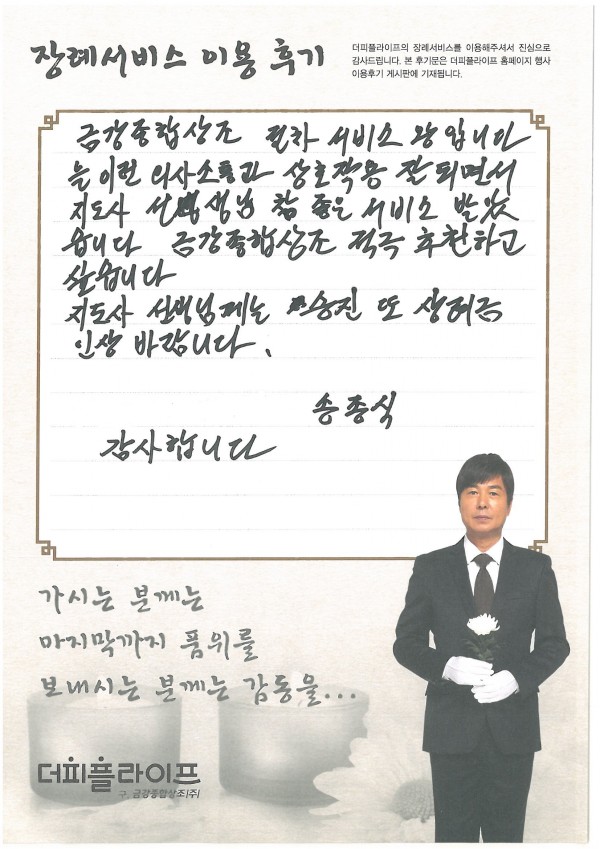 장례서비스 이용 후기
더피플라이프의 장례서비스를 이용해주셔서 진심으로
감사드립니다. 본 후기문은 더피플라이프 홈페이지 행사
이용후기 게시판에 기재됩니다.
금강종합상조 절차 서비스 왕입니다
는 이런 의사소통과 상호작용 잘 되면서
지도사 선생님 참 좋은 서비스 받았
습니다 금강종합상조 적극 추천하고
싶습니다
지도사 선생님께는 승진 또 상여금
인상 바랍니다.
송종식
감사합니다
가시는 분께는
마지막까지 품위를
보내시는 분께는 감동을...
더피플라이프
구. 금강종합상조(주)